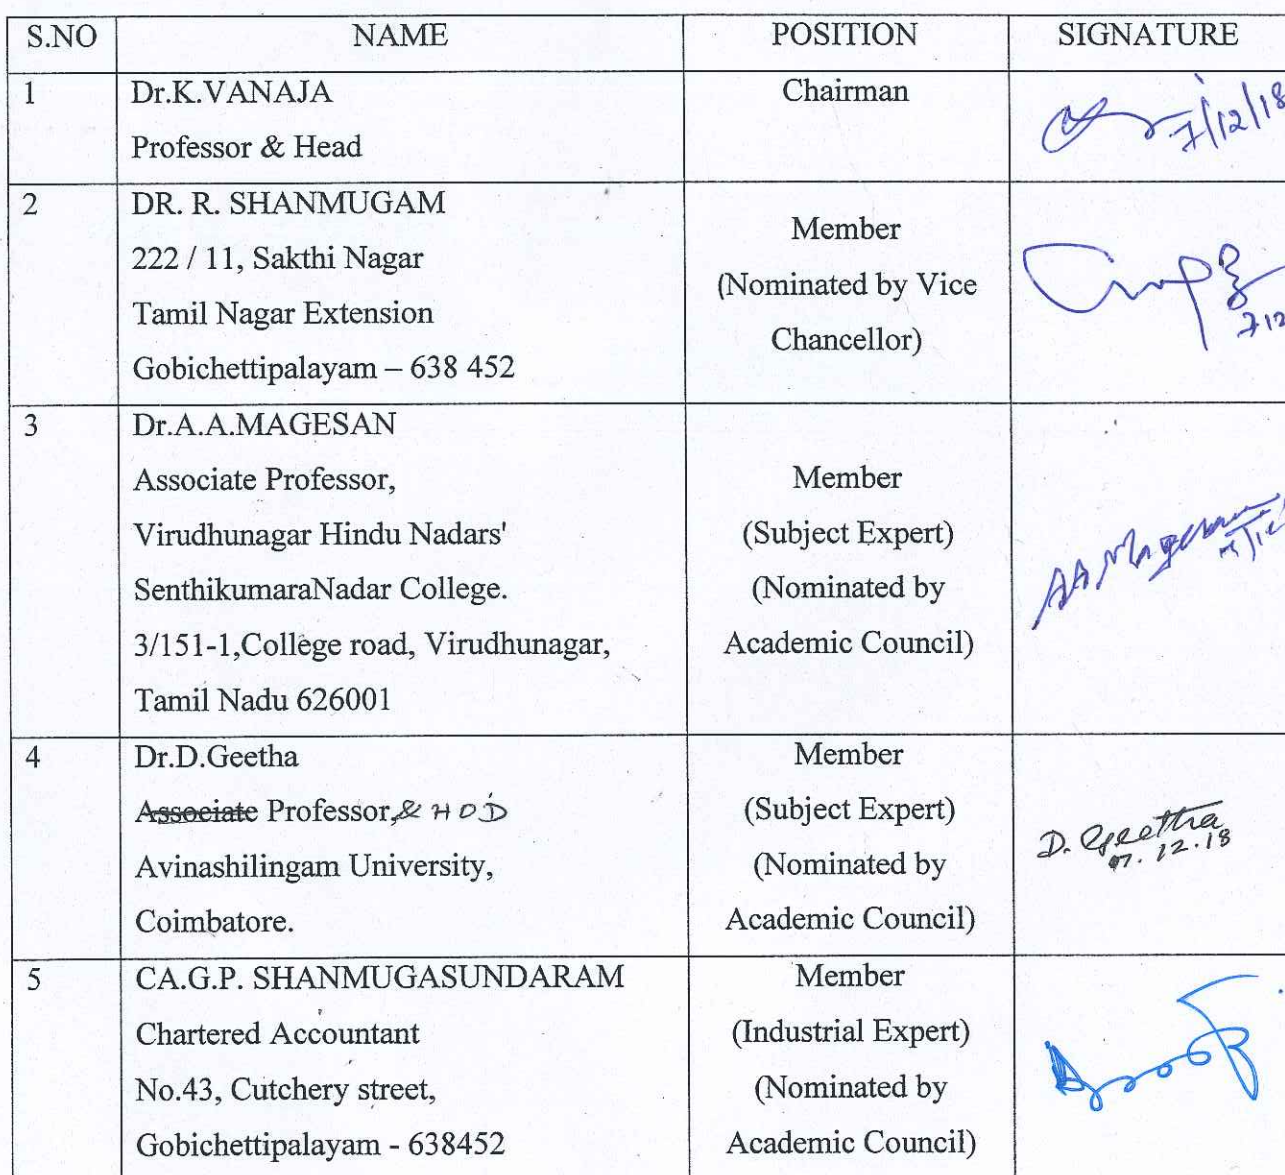 S.NO NAME POSITION SIGNATURE
1 Dr.K.VANAJA Chairman
7/12/18
Professor & Head
2 DR. R. SHANMUGAM
222 / 11, Sakthi Nagar
Tamil Nagar Extension
Gobichettipalayam – 638 452
Member
(Nominated by Vice
Chancellor)
3 Dr.A.A.MAGESAN
Associate Professor,
Virudhunagar Hindu Nadars'
SenthikumaraNadar College.
3/151-1,College road, Virudhunagar,
Tamil Nadu 626001
Member
(Subject Expert)
(Nominated by
Academic Council)
AA Magesan
4 Dr.D.Geetha
Associate Professor,& HOD
Avinashilingam University,
Coimbatore.
Member
(Subject Expert)
(Nominated by
Academic Council)
D. Geetha
07.12.18
5 CA.G.P. SHANMUGASUNDARAM
Chartered Accountant
No.43, Cutchery street,
Gobichettipalayam - 638452
Member
(Industrial Expert)
(Nominated by
Academic Council)